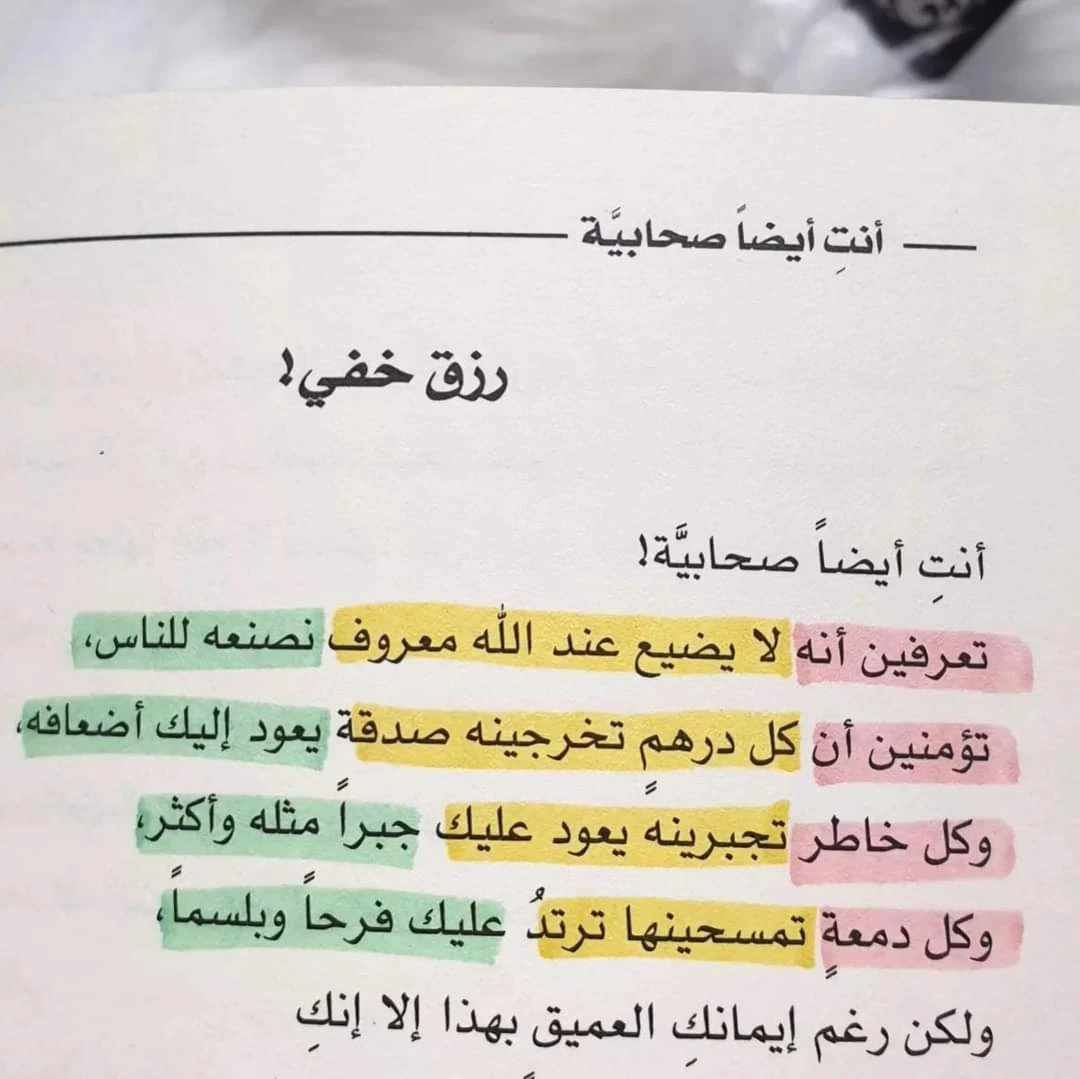 أنتِ أيضاً صحابيَّة
رزق خفي!
أنتِ أيضاً صحابيَّة!
تعرفين أنه لا يضيع عند الله معروف نصنعه للناس،
تؤمنين أن كل درهمٍ تخرجينه صدقة يعود إليك أضعافه،
وكل خاطر تجبرينه يعود عليك جبراً مثله وأكثر،
وكل دمعةٍ تمسحينها ترتدُ عليك فرحاً وبلسماً،
ولكن رغم إيمانكِ العميق بهذا إلا إنكِ